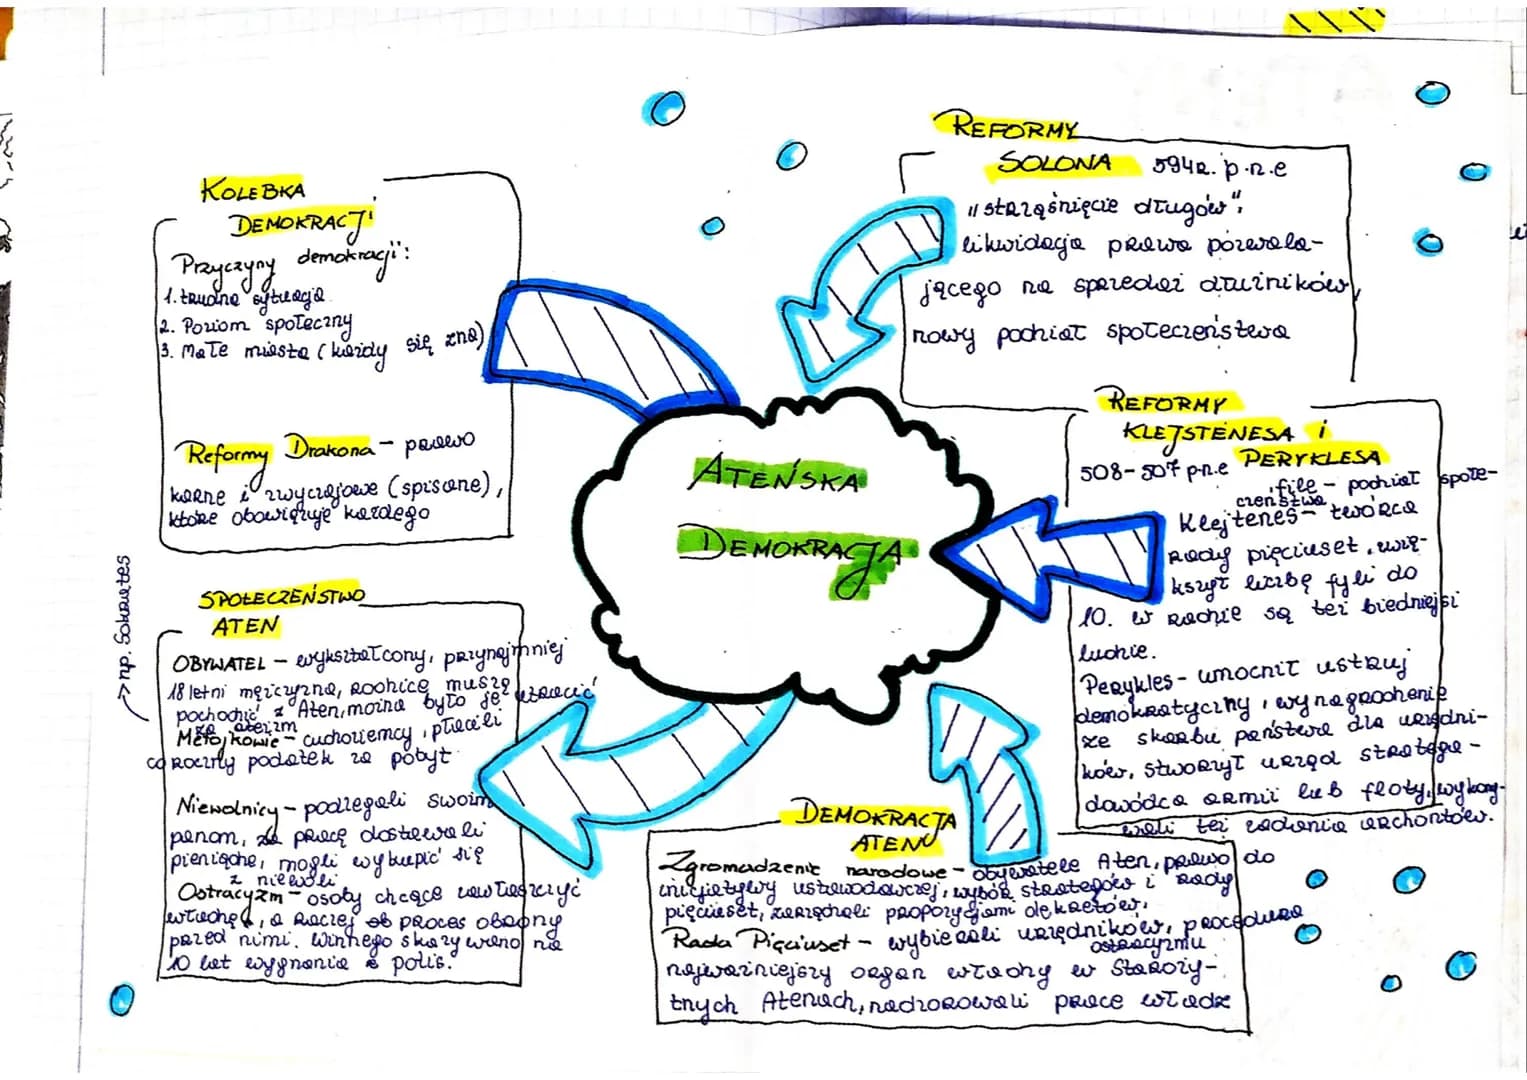 KOLEBKA
DEMOKRACJI
Przyczyny demokracji:
1. trudna sytuacja
2. Poziom społeczny
3. Małe miasta (każdy się zna)
Reformy Drakona - prawo
karne i zwyczajowe (spisane),
które obowiązuje każdego
SPOŁECZEŃSTWO
ATEN
→ np. Sokrates
OBYWATEL - wykształcony, przynajmniej
18 letni mężczyzna, rodzice muszą
pochodzić z Aten, można było je utracić
za ateizm
Metojkowie - cudzoziemcy, płacili
coroczny podatek za pobyt
Niewolnicy - podlegali swoim
panom, za pracę dostawali
pieniądze, mogli wykupić się
z niewoli
Ostracyzm - osoby chcące zawłaszczyć
władzę, a raczej proces obrony
przed nimi. Winnego skazywano na
10 lat wygnania z polis.
ATEŃSKA
DEMOKRACJA
REFORMY
SOLONA 594r. p.n.e
"strząśnięcie długów",
likwidacja prawa pozwala-
jącego na sprzedaż dłużników,
nowy podział społeczeństwa
REFORMY
KLEJSTENESA i
PERYKLESA
508-507 p.n.e
file - podział społe-
czeństwa
Klejtenes - twórca
Rady pięciuset, zwię-
kszył liczbę fyli do
10. W radzie są też biedniejsi
ludzie.
Perykles - umocnił ustruj
demokratyczny, wynagrodzenie
ze skarbu państwa dla urzędni-
ków, stworzył urząd stratega -
dowódca armii lub floty, wykony-
wali też zadania archontów.
DEMOKRACJA
ATEN
Zgromadzenie narodowe - obywatele Aten, prawo do
inicjatywy ustawodawczej, wybór strategów i Rady
pięciuset, zarządzali propozycjami dekretów,
Rada Pięciuset - wybierali urzędników, procedura
ostracyzmu
najważniejszy organ władzy w Staroży-
tnych Atenach, nadzorowali prace władz